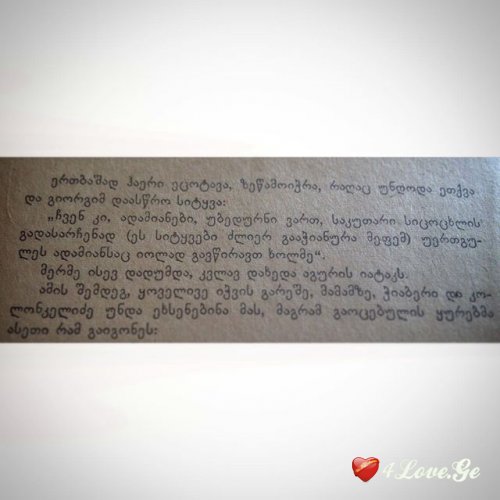 ერთბაშად ჰაერი ეცოტავა, ზეწამოიჭრა, რაღაც უნდოდა ეთქვა
და გიორგიმ დაასწრო სიტყვა:
„ჩვენ კი, ადამიანები, უბედურნი ვართ, საკუთარი სიცოცხლის
გადასარჩენად (ეს სიტყვები ძლიერ გააჭიანურა მეფემ) უერთგუ-
ლეს ადამიანსაც იოლად გავწირავთ ხოლმე“.
მერმე ისევ დადუმდა, კვლავ დახედა აგურის იატაკს.
ამის შემდეგ, ყოველივე იჭვის გარეშე, მამამზე, ჭიაბერი და კო-
ლონკელიძე უნდა ეხსენებინა მას, მაგრამ გაოცებულის ყურებმა
ასეთი რამ გაიგონეს:
4Love.Ge